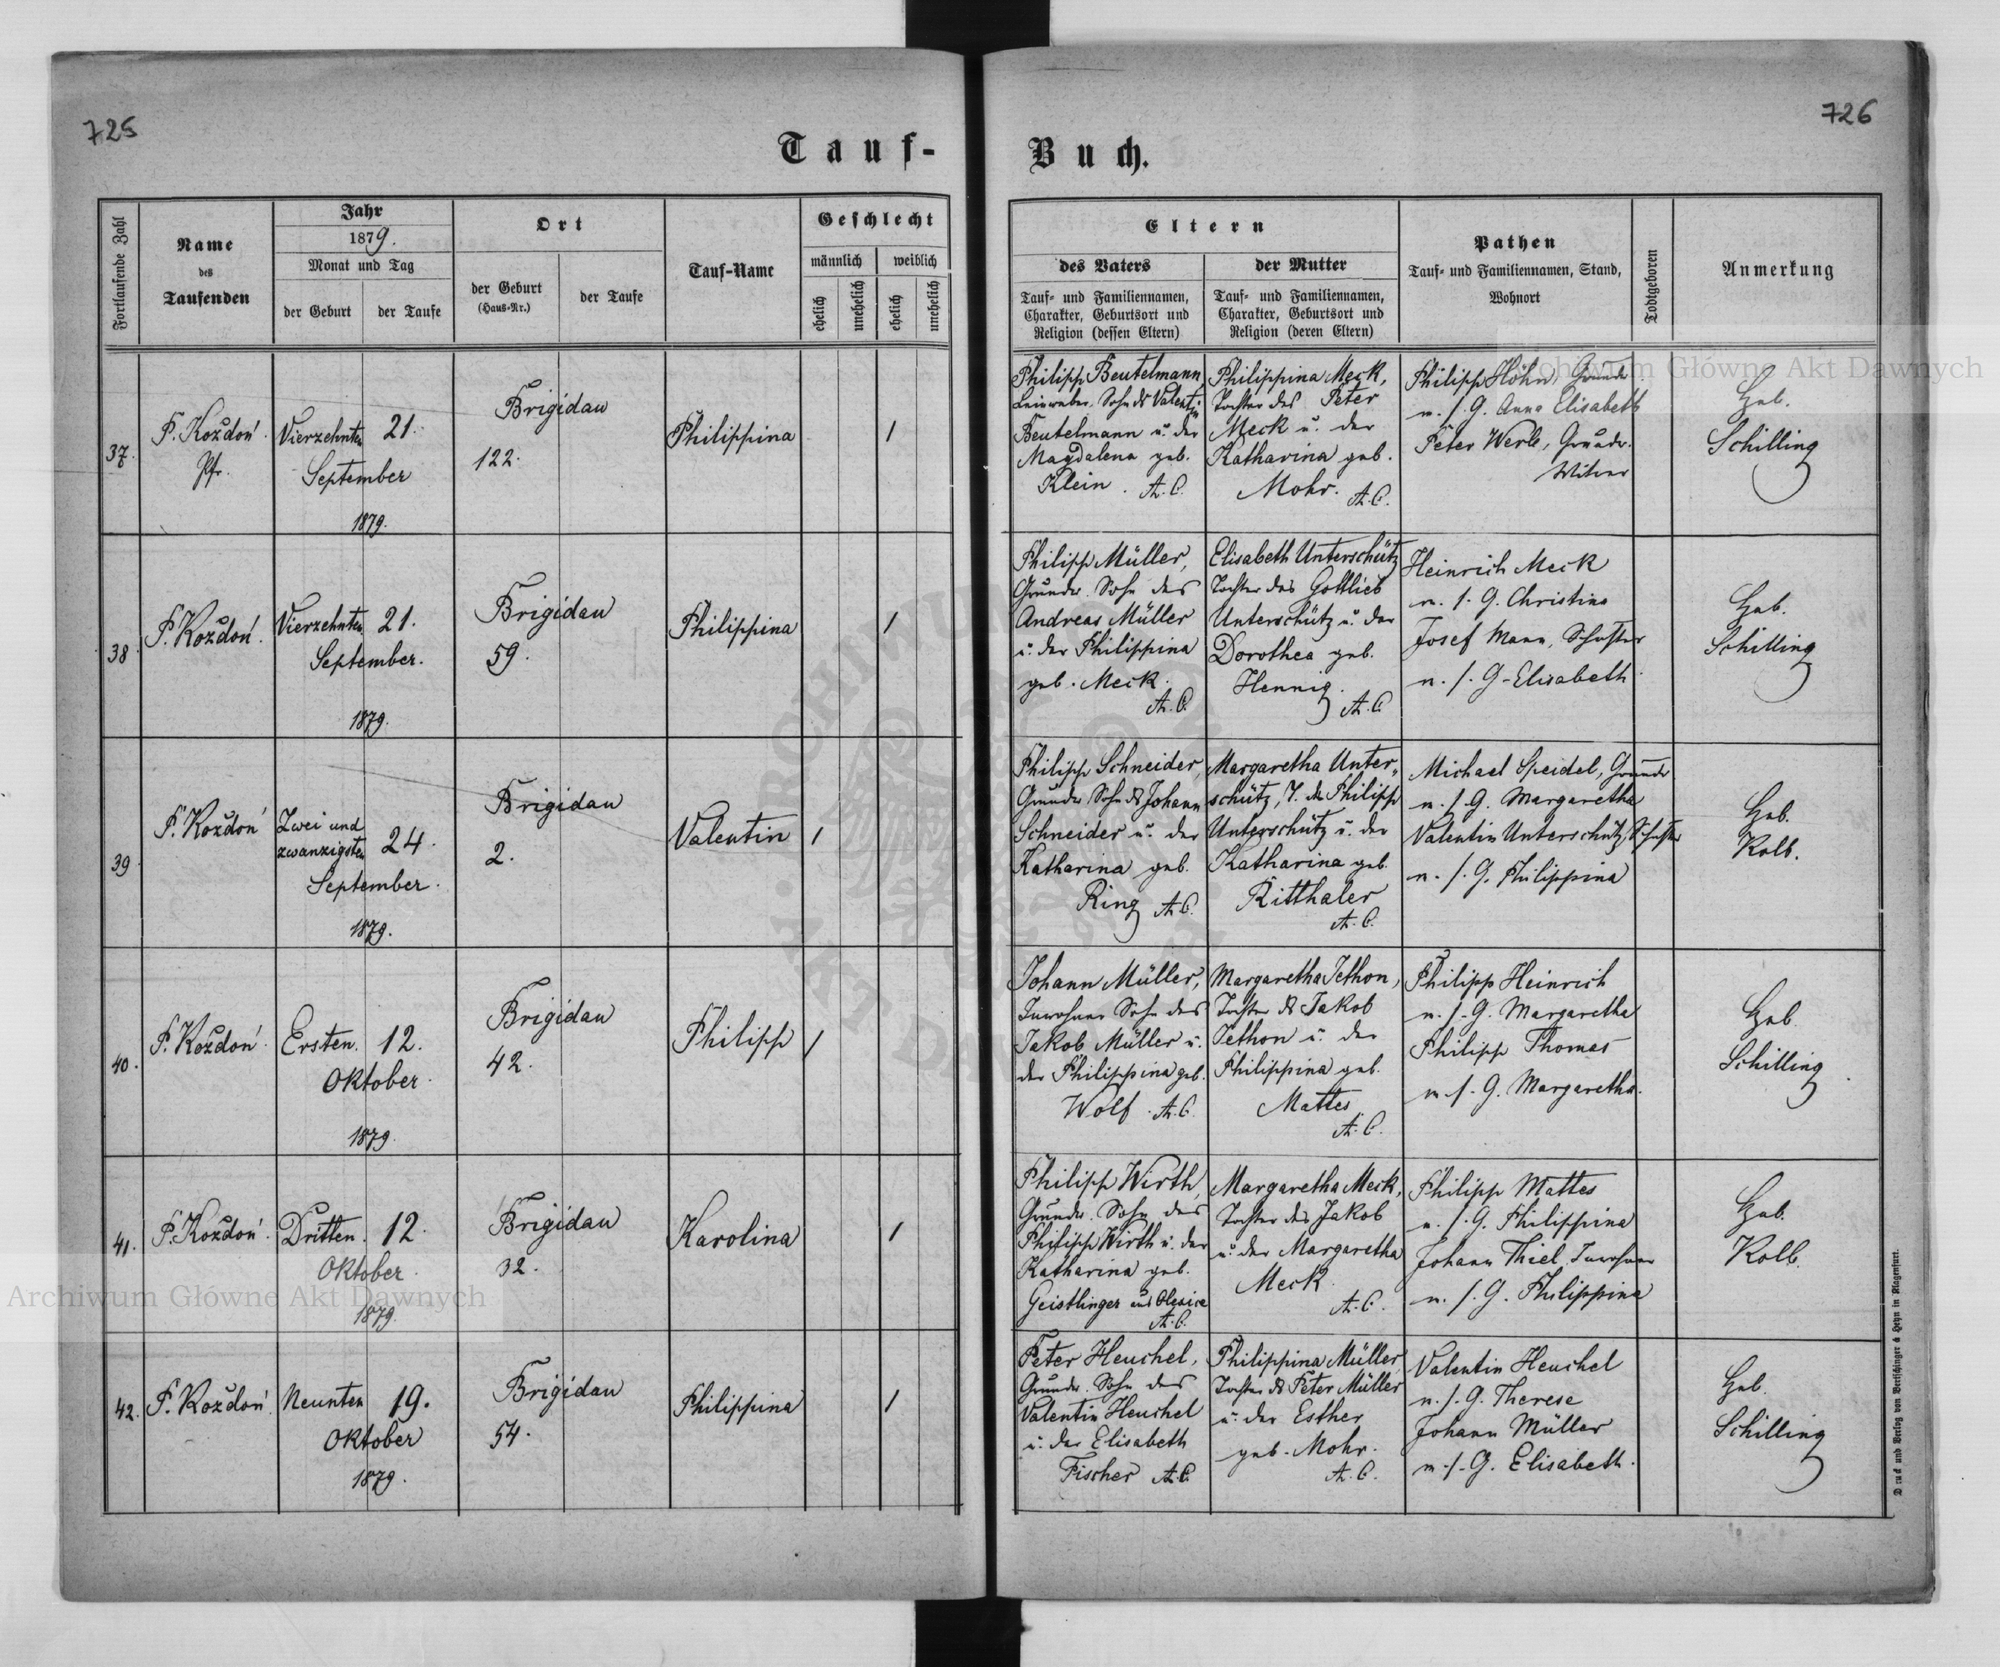 725
726
Tauf-
Buch.
Fortlaufende Zahl
Name
des
Taufenden
Jahr
1879.
Monat und Tag
der Geburt
der Taufe
Ort
der Geburt
(Haus-Nr.)
der Taufe
Tauf-Name
Geschlecht
männlich
weiblich
ehelich
unehelich
ehelich
unehelich
Eltern
des Vaters
Tauf- und Familiennamen,
Charakter, Geburtsort und
Religion (dessen Eltern)
der Mutter
Tauf- und Familiennamen,
Charakter, Geburtsort und
Religion (deren Eltern)
Pathen
Tauf- und Familiennamen, Stand,
Wohnort
Todtgeboren
Anmerkung
37.
P. Kozdoń
Pfr.
Vierzehnten
September
1879.
21.
Brigidau
122.
Philippina
1
Philipp Beutelmann
Leinweber. Sohn ds Valentin
Beutelmann u. der
Magdalena geb.
Klein. A. C.
Philippina Meck,
Tochter des Peter
Meck u. der
Katharina geb.
Mohr. A. C.
Philipp Höhn, Grundr
u. s. G. Anna Elisabeth
Peter Werle, Grundr.
Witwer
Heb.
Schilling
38.
P. Kozdoń.
Vierzehnten
September.
1879.
21.
Brigidau
59.
Philippina
1
Philipp Müller,
Grundr. Sohn des
Andreas Müller
u. der Philippina
geb. Meck.
A. C.
Elisabeth Unterschütz
Tochter des Gottlieb
Unterschütz u. der
Dorothea geb.
Hennig.
A. C.
Heinrich Meck
u. s. G. Christina
Josef Mann, Schuster
u. s. G. Elisabeth.
Heb.
Schilling
39
P. Kozdoń
Zwei und
zwanzigsten
September.
1879.
24.
Brigidau
2.
Valentin
1
Philipp Schneider,
Grundr Sohn ds Johann
Schneider u. der
Katharina geb.
Ring A. C.
Margaretha Unter-
schütz, T. des Philipp
Unterschütz u. der
Katharina geb.
Ritthaler
A. C.
Michael Speidel, Grundr
u. s. G. Margaretha
Valentin Unterschütz, Schuster
u. s. G. Philippina
Heb.
Kolb.
40.
P. Kozdoń.
Ersten.
Oktober.
1879.
12.
Brigidau
42.
Philipp
1
Johann Müller,
Inwohner Sohn des
Jakob Müller u.
der Philippina geb.
Wolf. A. C.
Margaretha Jethon,
Tochter ds Jakob
Jethon u. der
Philippina geb.
Mattes.
A. C.
Philipp Heinrich
u. s. G. Margaretha
Philipp Thomas
u. s. G. Margaretha.
Heb
Schilling
41.
P. Kozdoń.
Dritten.
Oktober.
1879.
12.
Brigidau
32.
Karolina
1
Philipp Wirth,
Grundr. Sohn des
Philipp Wirth u. der
Katharina geb.
Geistlinger aus Olesice
A. C.
Margaretha Meck,
Tochter des Jakob
u. der Margaretha
Meck.
A. C.
Philipp Mattes
u. s. G. Philippina
Johann Thiel, Inwohner
u. s. G. Philippina
Heb.
Kolb.
42.
P. Kozdoń.
Neunten
Oktober
1879.
19.
Brigidau
54.
Philippina
1
Peter Heuchel,
Grundr. Sohn des
Valentin Heuchel
u. der Elisabeth
Fischer A. C.
Philippina Müller
Tochter ds Peter Müller
u. der Esther
geb. Mohr.
A. C.
Valentin Heuchel
u. s. G. Therese
Johann Müller
u. s. G. Elisabeth.
Heb.
Schilling
Druck und Verlag von Bertschinger & Heyn in Klagenfurt.
Archiwum Główne Akt Dawnych
Archiwum Główne Akt Dawnych